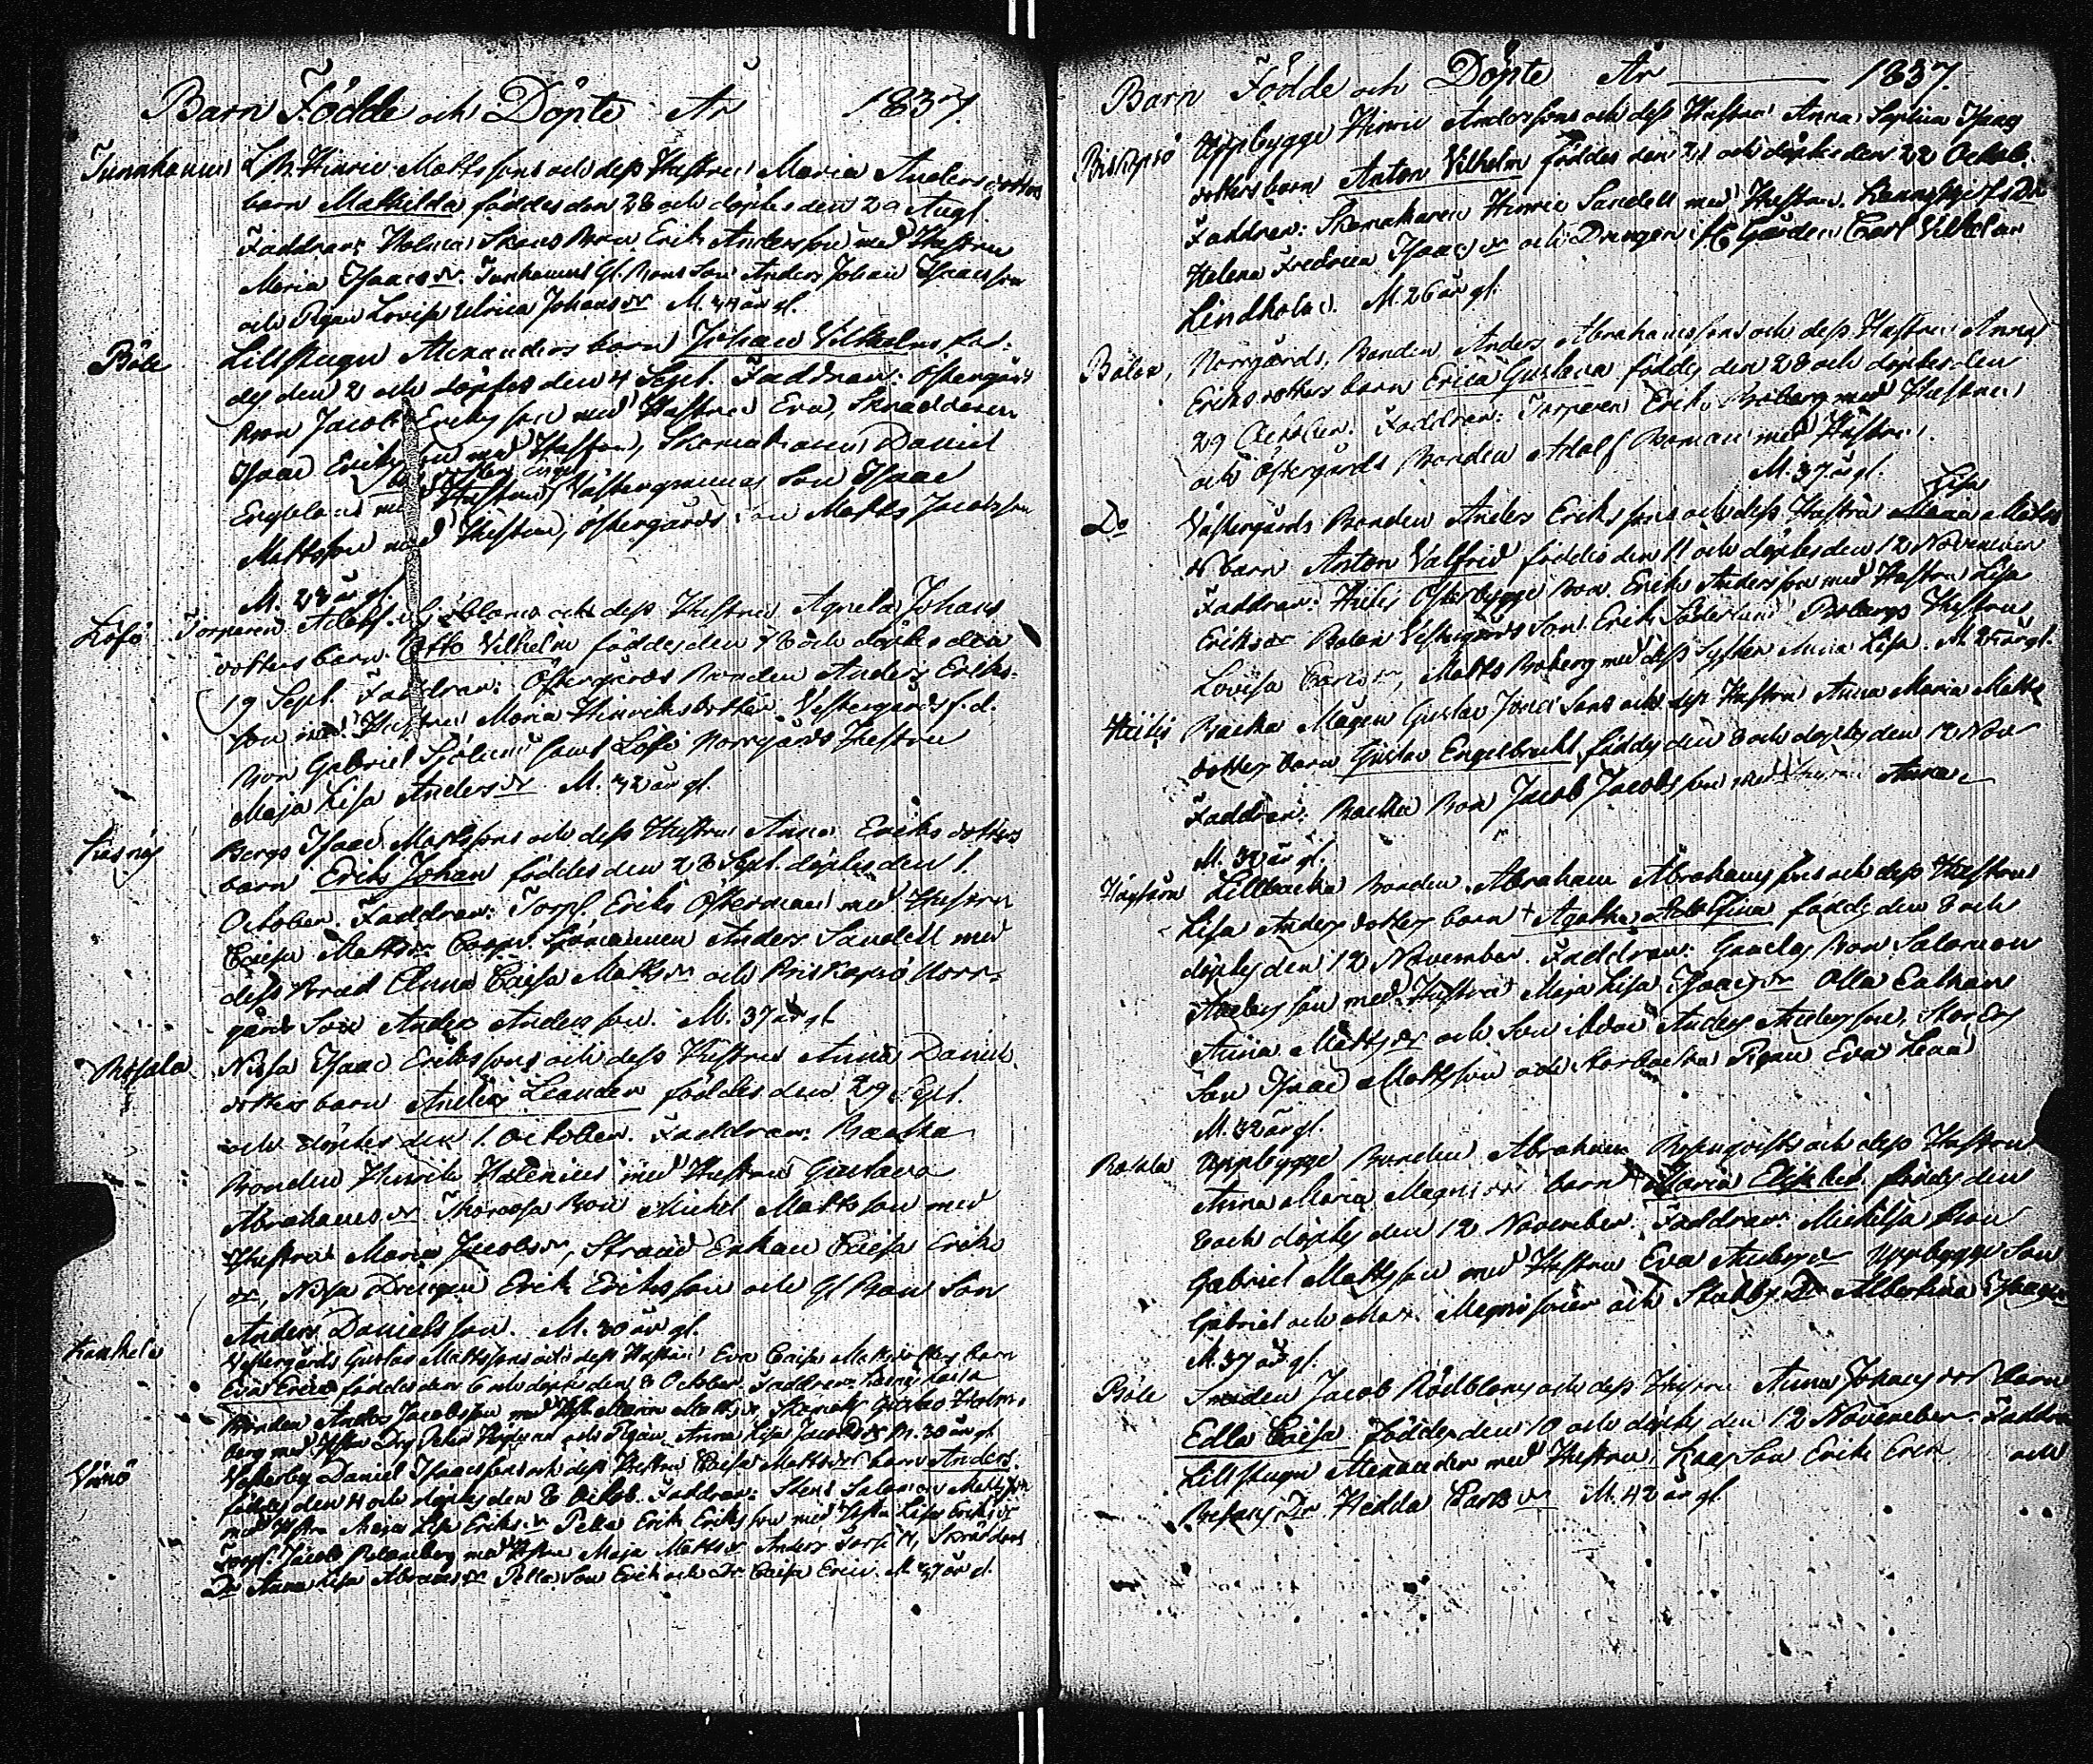 Barn Födde och Döpte År 1837.
Tunnhamn L. B. Hinric Mattssons och dess Hustrus Maria Andersdotters
barn Mathilda föddes den 28 och döptes den 29 Augl.
Faddrar: Holma Bon Erik Andersson med Hustru
Maria Isaacsdr. Tunhamns Gl. Bons Son Anders Johan Isaacsson
och Pigan Lovisa Ulrica Johansdr M. 44 år gl.
Böle Lillstugu Alexanders barn Johan Vilhelm föd-
des den 2 och döptes den 4 Sept. Faddrar: Östergårds
Bon Jacob Ericsson med Hustru Eva, Skräddaren
Isaac Ericsson med Hustru, Skomakaren Daniel
Englund med Hustru, Västergrannas Son Isaac
Mattsson med Hustru, Östergårds Son Matts Jacobsson
M. 28 år gl.
Löfö Torparen Adolf och dess Hustrus Agneta Johans
dotters barn Otto Vilhelm föddes den 18 och döptes den
19 Sept. Faddrar: Östergårds Bonden Anders Eriks-
son med Hustru Maria Hinriksdotter Vestergårds f.d.
Bon Gabriel Sjölund samt Löfö Norrgårds Hustru
Maja Lisa Andersdr M. 32 år gl.
Kasnäs Bergs Isaac Mattssons och dess Hustrus Anna Eriks dotters
barn Erik Johan föddes den 28 Sept. döptes den 1.
October. Faddrar: Torp. Erik Österman med Hustru
Caisa Mattsdr Coopv. Sjömannen Anders Sandell med
dess Brud Anna Caisa Mattsdr och Biskopsö Norr-
gårds Son Anders Andersson. M. 37 år gl.
Rosala Nissa Isaac Erikssons och dess Hustrus Anna Daniels
dotters barn Anders Leander föddes den 29 Sept.
och döptes den 1. October. Faddrar: Backa
Bonden Henrik Halenius med Hustru Gustava
Abrahamsdr Thoroosa Bon Michel Mattsson med
Hustru Maria Jacobsdr, Strand Enkan Caisa Eriks
dr, Nissa Drengen Erik Eriksson och Gl. Bons Son
Anders Danielsson. M. 30 år gl.
Vestergårds Gustav Mattssons och dess Hustrus Eva Caisa Mattsdotters barn
Eva Erica föddes den 6 och döptes den 8 October. Faddrar:
Bonden Anders Jacobsson med Hustru Skomak. Gustav Holm-
berg med Hustru och Pigan Anna Lisa Jacobsdr M. 30 år gl.
Vänö Vesterby Daniel Isaacssons och dess Hustrus Caisa Mattsdrs barn Anders.
föddes den 4 och döptes den 8 Octob. Faddrar: Salomon Mattsson
med Hustru Maja Lisa Eriksdr Pella Erik Eriksson med Hustru Lisa Eriksdr
Torp. Jacob Blomberg med Hustru Maja Mattsdr Anders
Dr Anna Lisa Abramsdr Pella Son Erik och Dr Caisa Eric. M. 37 år gl.
Barn Födde och Döpte År 1837.
Biskopsö Uppbygge Hinric Anderssons och dess Hustrus Anna Sophia Isaacs
dotters barn Anton Vilhelm föddes den 21 och döptes den 22 Octob.
Faddrar: Skomakaren Hinric Sandell med Hustru,
Helena Fredrica Isaacsdr och Drengen i Gården Carl Vilhelm
Lindholm. M. 26 år gl.
Bolax, Norrgårds, Bonden Anders Abrahamssons och dess Hustrus Anna
Eriksdotters barn Erica Gustava föddes den 28 och döptes den
29 October. Faddrar: Torparen Erik Broberg med Hustru
och Östergårds Bonden Adolf Boman med Hustru.
M. 37 år gl.
Do Västergårds Bonden Anders Erikssons och dess Hustrus Maria Lisa Matts
dr barn Anton Valfrid föddes den 11 och döptes den 12 November
Faddrar: Hiitis Österbygge Bon Erik Andersson med Hustru Lisa
Eriksdr Bolax Vestergårds Son Erik Söderlund Brobergs Hustru
Lovisa Carlsdr, Matts Broberg med dess Syster Anna Lisa. M. år gl.
Hiitis Backa Mågen Gustav Jonassons och dess Hustrus Anna Maria Matts
dotters barn Gustav Engelbrecht föddes den 8 och döptes den 12 Nov
Faddrar: Backa Bon Jacob Jacobsson med Hustru Anna
M. 32 år gl.
Högsåra Lillbacka Bonden Abraham Abrahamssons och dess Hustrus
Lisa Andersdotters barn + Agatha Adolfina föddes den 8 och
döptes den 12 November. Faddrar: Bon Salomon
Andersson med Hustru Maja Lisa Isaacsdr Olla Enkan
Anna Mattsdr och Son ibdm Anders Andersson,
Son Isaac Mattsson och Norbacka Pigan Eva Lena
M. 32 år gl.
Uppbygge Bonden Abraham Rosenqvists och dess Hustrus
Anna Maria Magnidr barn + Maria Elisabet föddes den
8 och döptes den 12 November. Faddrar: Mickelsa Bon
Gabriel Mattsson med Hustru Eva Andersdr Uppbygge Son
Gabriel och Magnisöner och Stubby Dr Albertina Isaacs
M. 37 år gl.
Böle Smeden Jacob Rödbloms och dess Hustrus Anna Johansdrs Barn
Edla Caisa föddes den 10 och döptes den 12 November. Faddrar
Lillstugu Alexander med Hustru, Son Erik Eric och
Dr Hedda Carlsdr M. 42 år gl.